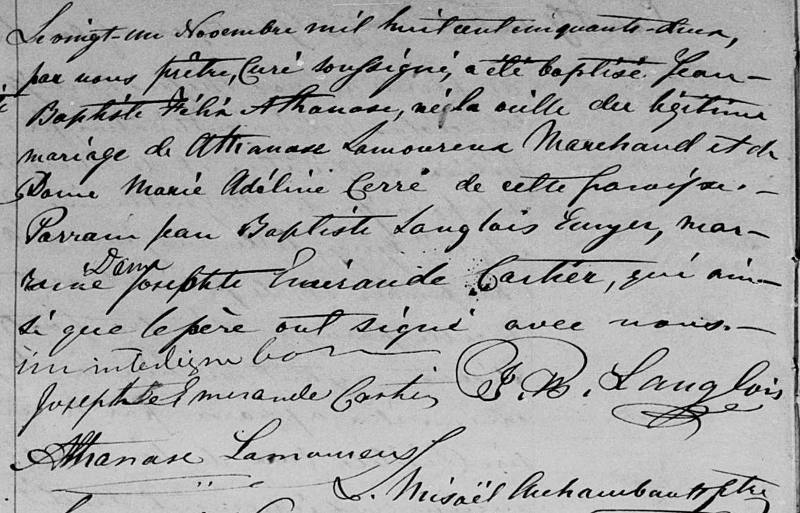 Le vingt-un Novembre mil huit cent cinquante-deux,
par nous prêtre, Curé soussigné, a été baptisé Jean-
Baptiste Félix Athanase, né la veille du légitime
mariage de Athanase Lamoureux Marchand et de
Dame Marie Adéline Cerré de cette paroisse.-
Parrain Jean Baptiste Langlois Ecuyer, mar-
raine Dame Josephte Emérande Cartier, qui ain-
si que le père ont signé avec nous.-
un interligne bon
Josephte Emerande Cartier J. B. Langlois
Athanase Lamoureux
L. Misaël Archambault Ptre